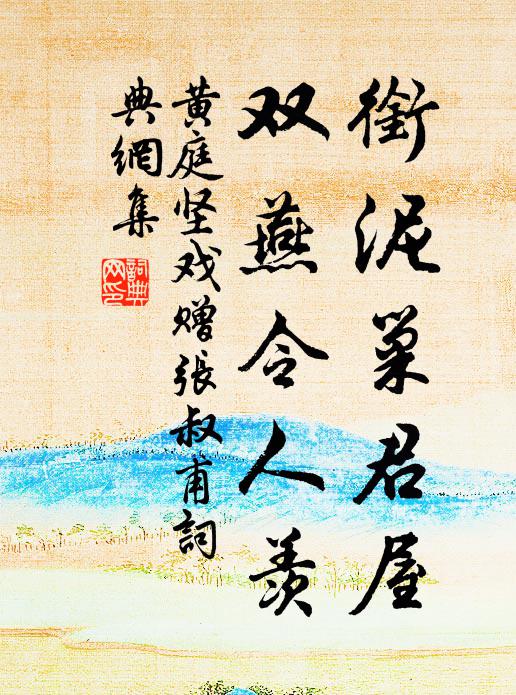 衔泥巢君屋
双燕令人羡
黄庭坚戏赠張叔甫詞
典網集
詞典
网印